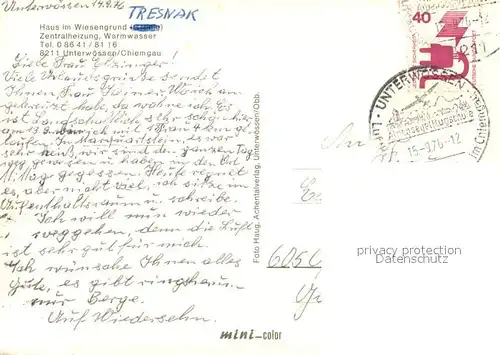 Unterwössen 14.9.76
TRESNAK
Haus im Wiesengrund
Zentralheizung, Warmwasser
Tel. 0 86 41 / 81 16
8211 Unterwössen/Chiemgau
Liebe Frau !
Viele Urlaubsgrüße sendet
Ihnen Frau
gekreuzt habe, da wohne ich. Es
ist landschaftlich sehr schön hier
am 13. bin ich mit 1 Frau 4 km ge-
laufen. In Marquartstein, es war
sehr nett, wir sind den ganzen Tag
weg gewesen u haben in den Ort
Mittag gegessen. Heute regnet
es, aber nicht viel, ich sitze im
Aufenthaltsraum u. schreibe.
Ich will nun wieder
weggehen, denn die Luft
ist sehr gut für mich.
Ich wünsche Ihnen alles
Gute, es gibt ringsherum
nur Berge.
Auf Wiedersehn.
Foto Haug, Achentalverlag, Unterwössen/Obb.
mini-color
40
UNTERWÖSSEN
Alpensegelflugschule
15.-9.76-12
im Chiemgau
An
605
privacy protection
Datenschutz